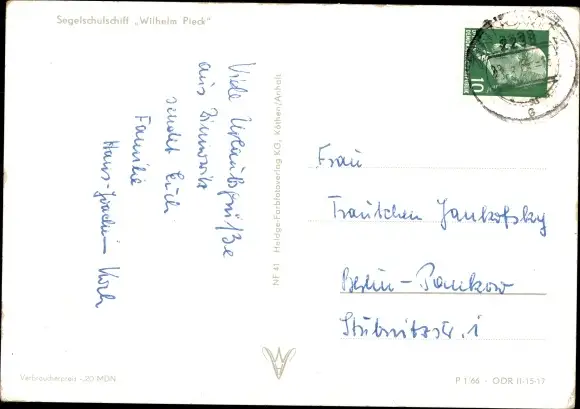 Segelschulschiff „Wilhelm Pieck"
Viele Urlaubsgrüße
aus Zinnowitz
sendet Euch
Familie
Hans-Joachim Koch
NF 41 Heldge-Farbfotoverlag KG, Köthen/Anhalt
10
2238
Frau
Trautchen Jankofsky
Berlin-Pankow
Stubnitzstr. 1
Verbraucherpreis -,20 MDN
P 1/66 · ODR II-15-17